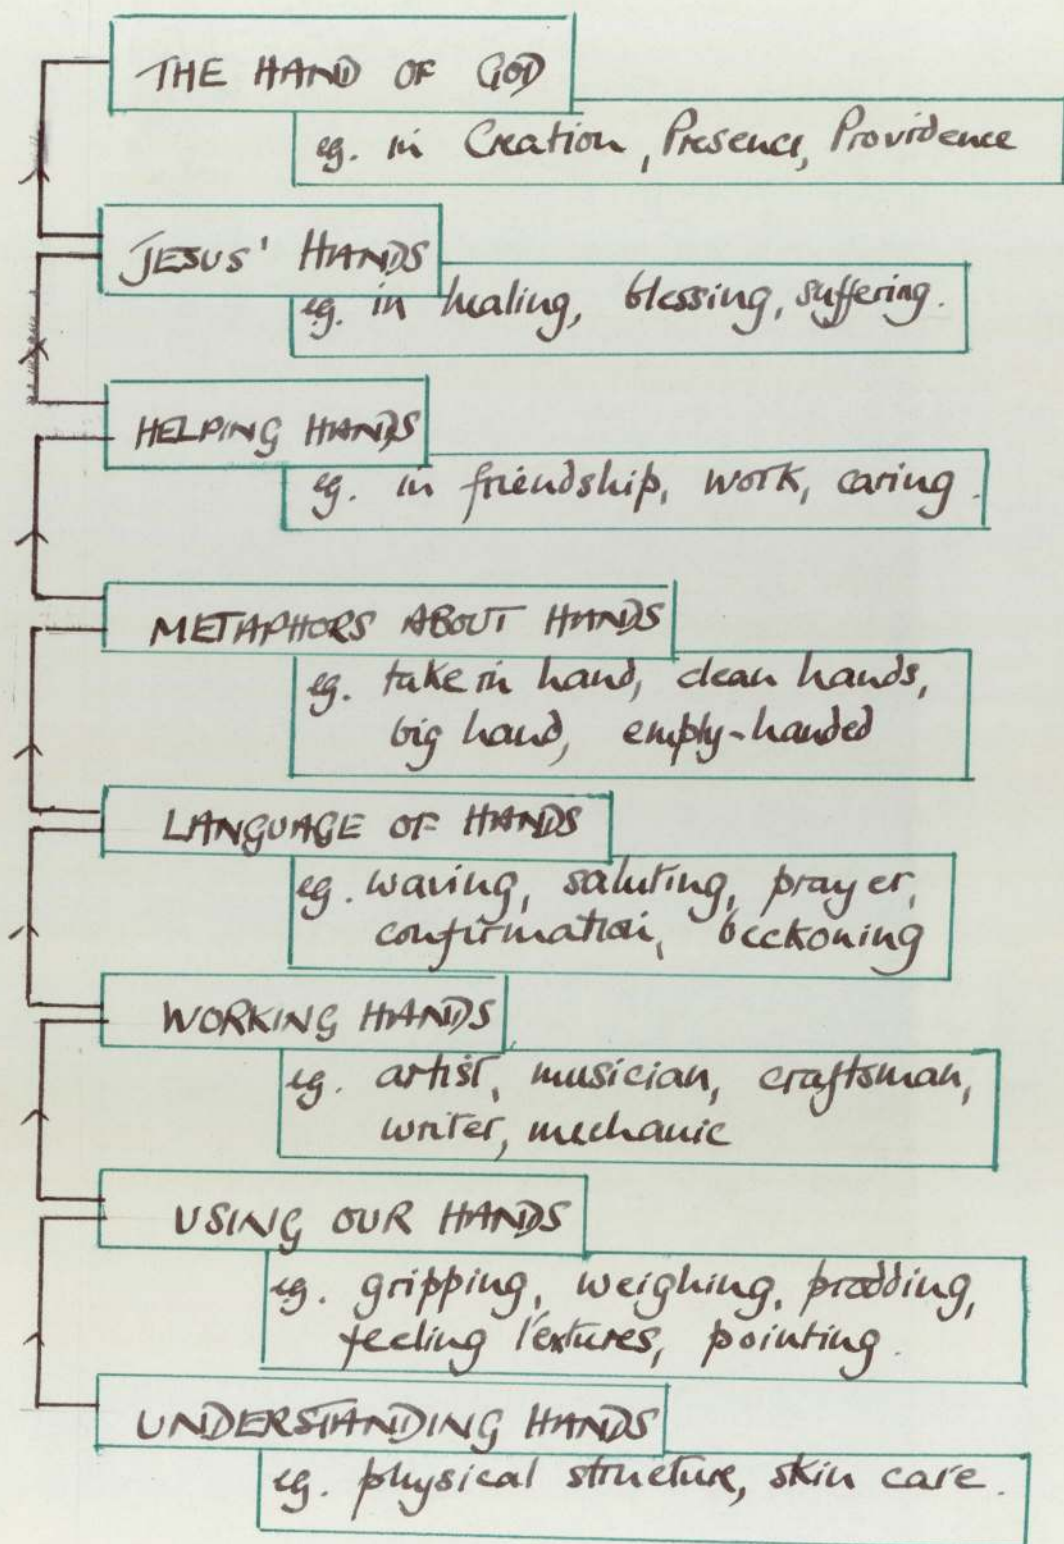 THE HAND OF GOD
eg. in Creation, Presence, Providence
JESUS' HANDS
eg. in healing, blessing, suffering.
HELPING HANDS
eg. in friendship, work, caring.
METAPHORS ABOUT HANDS
eg. take in hand, clean hands,
big hand, empty-handed
LANGUAGE OF HANDS
eg. waving, saluting, prayer,
confirmation, beckoning
WORKING HANDS
eg. artist, musician, craftsman,
writer, mechanic
USING OUR HANDS
eg. gripping, weighing, prodding,
feeling textures, pointing.
UNDERSTANDING HANDS
eg. physical structure, skin care.